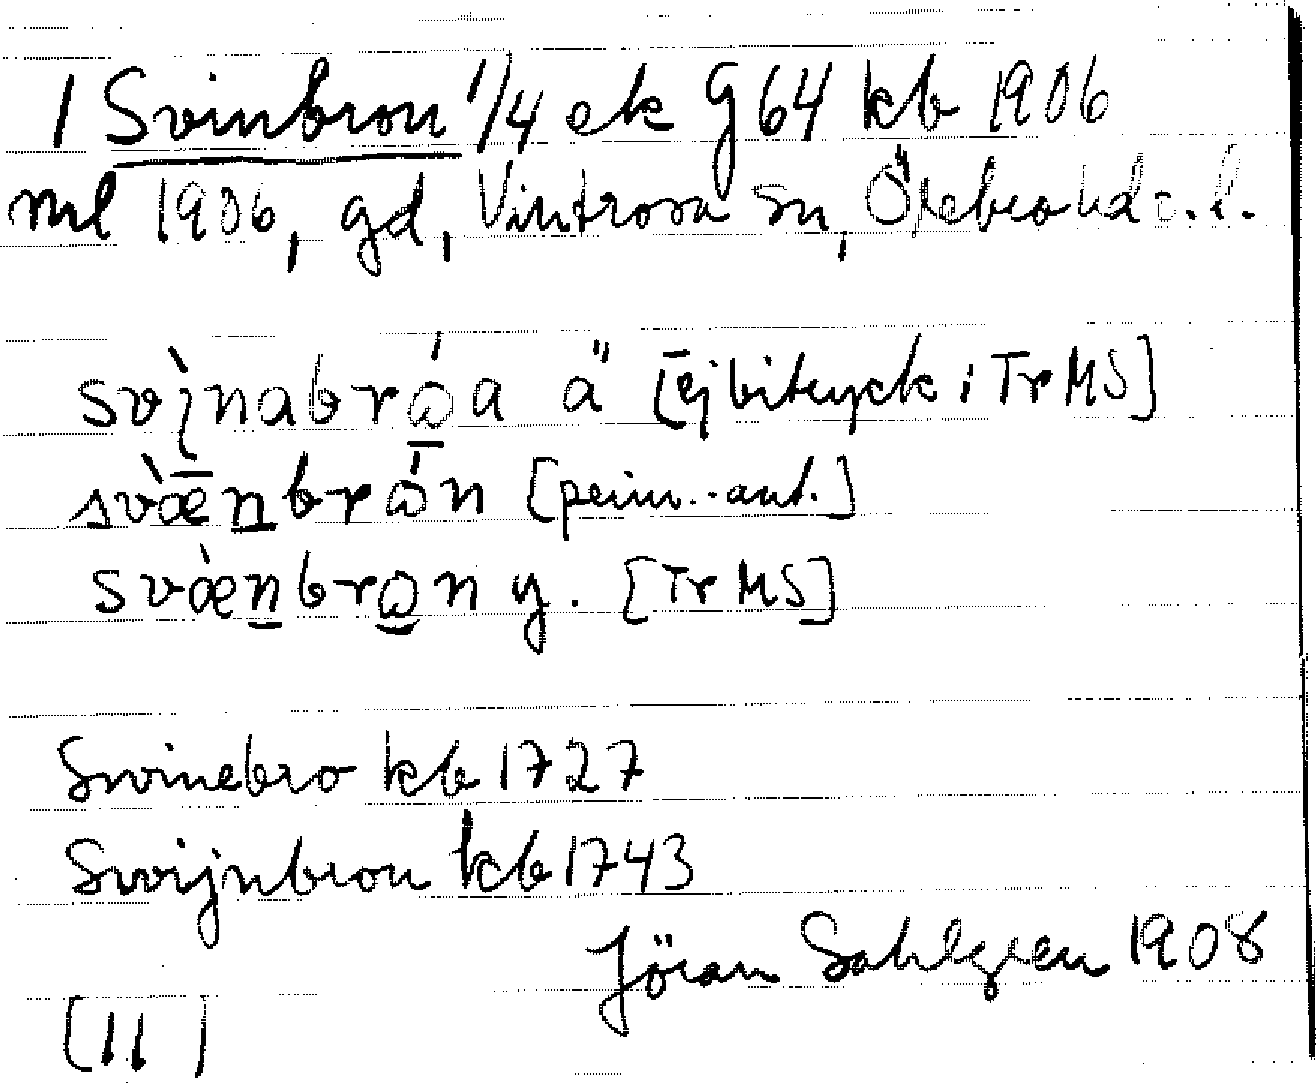 1 Svinbron 1/4 ek g 64 kb 1906
ml 1906, gd, Vintrosa sn, Örebro hd ö. l.
svì̖nabrǻa ä [ej bitryck i TrMS]
svæ̀̄nbrǻn [ -ant.]
svæ̀nbrån y. [TrMS]
Svinebro kb 1727
Swijnbron kb 1743
Jöran Sahlgren 1908
[11]